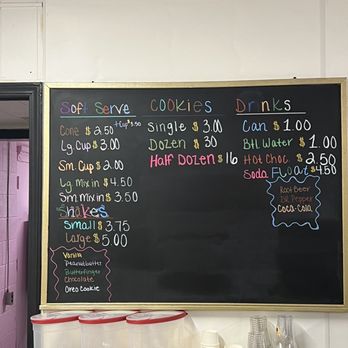 Soft Serve
Cone $2.50 +Cup $3.50
Lg. Cup $3.00
Sm. Cup $2.00
Lg. Mix in $4.50
Sm. mix in $3.50
Shakes
Small $3.75
Large $5.00
Vanilla
Peanutbutter
Butterfinger
Chocolate
Oreo Cookie
Cookies
Single $3.00
Dozen $30
Half Dozen $16
Drinks
Can $1.00
Btl. Water $1.00
Hot Choc. $2.50
Soda Float $4.50
Root Beer
Dr. Pepper
Coca-Cola